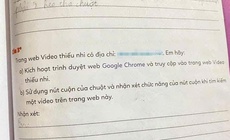 Trang web Video thiếu nhi có địa chỉ: Em hãy:
a) Kích hoạt trình duyệt web Google Chrome và truy cập vào trang web Video
thiếu nhi.
b) Sử dụng nút cuộn của chuột và nhận xét chức năng của nút cuộn khi tìm kiếm
một video trên trang web này.
Nhận xét: